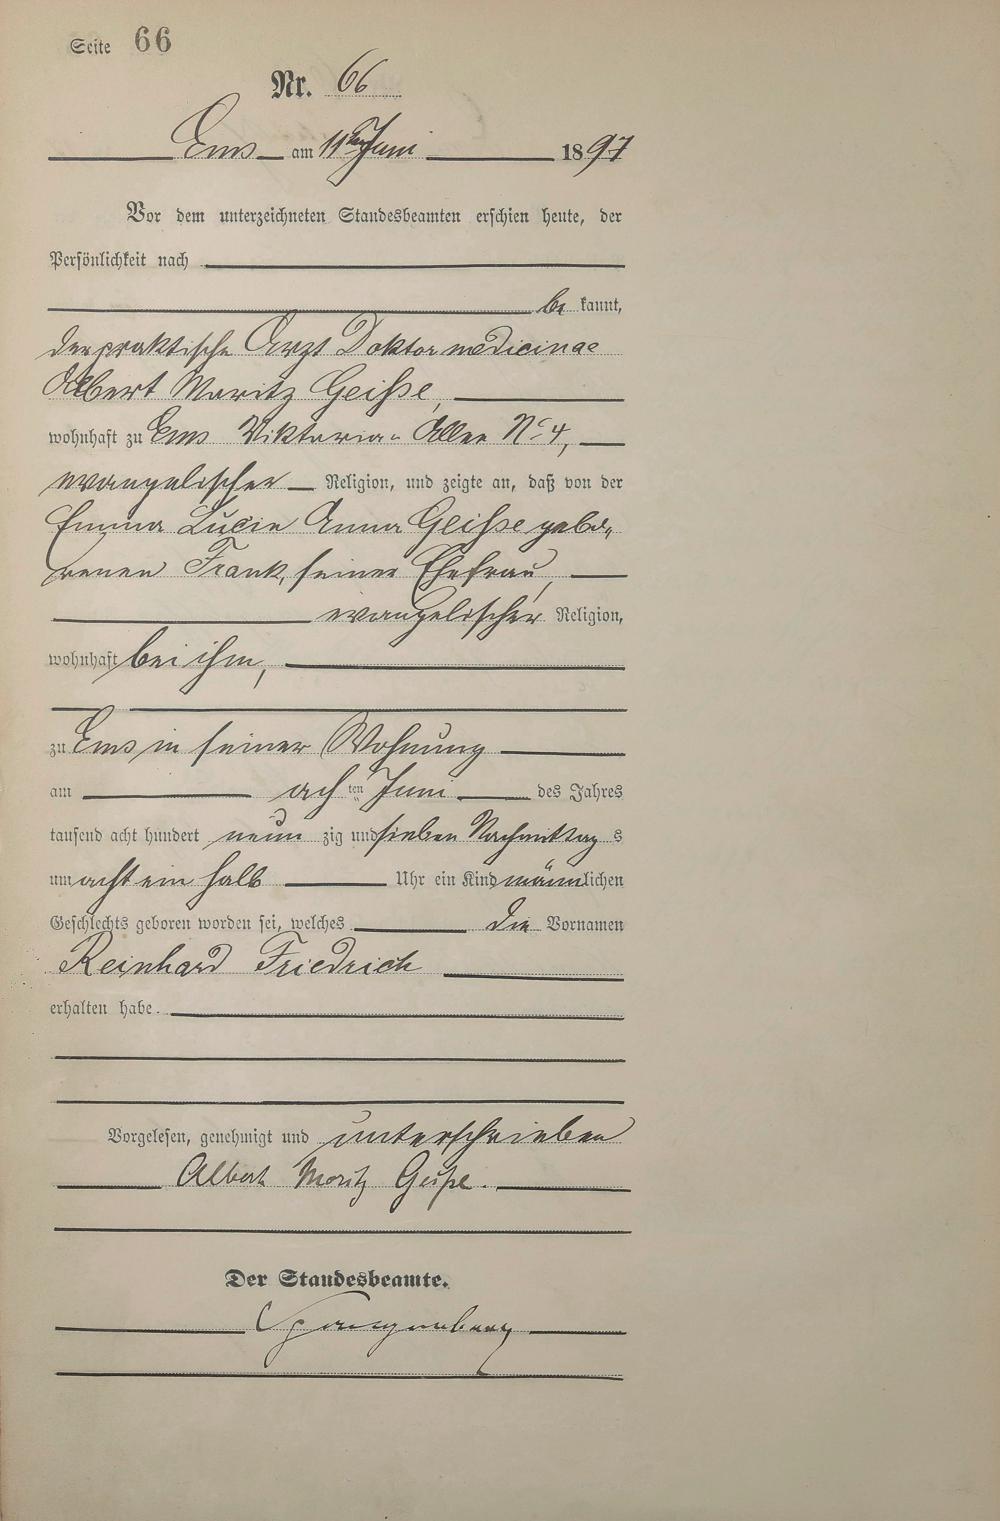 Seite 66
Nr. 66
Ems am 11ten Juni 1897
Vor dem unterzeichneten Standesbeamten erschien heute, der
Persönlichkeit nach
be kannt,
der praktische Arzt Doktor medicinae
Albert Moritz Geiße,
wohnhaft zu Ems Viktoria-Allee No 4,
evangelischer Religion, und zeigte an, daß von der
Emma Lucie Anna Geiße gebo„
renen Frank, seiner Ehefrau,
evangelischer Religion,
wohnhaft bei ihm,
zu Ems in seiner Wohnung
am achten Juni des Jahres
tausend acht hundert neun zig und sieben Nachmittag s
um acht ein halb Uhr ein Kind männlichen
Geschlechts geboren worden sei, welches die Vornamen
Reinhard Friedrich
erhalten habe.
Vorgelesen, genehmigt und unterschrieben
Albert Moritz Geiße.
Der Standesbeamte.
Spangenberg